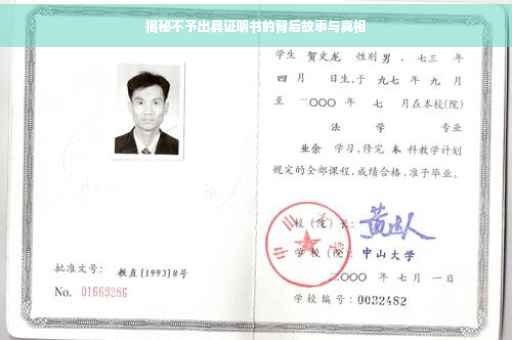 揭秘不予出具证明书的背后故事与真相
学生 贺文龙 性别 男 、七三 年
四 月 日生,于 九七 年 九 月
至 二〇〇〇 年 七 月在本校(院)
法 学 专业
业余 学习,修完 本 科教学计划
规定的全部课程,成绩合格,准予毕业。
校(院)长:
学 校(院): 中山大学
二〇〇〇 年 七 月 一 日
批准文号: 教直[1993]8号
No. 01669286
学校编号: 0032482